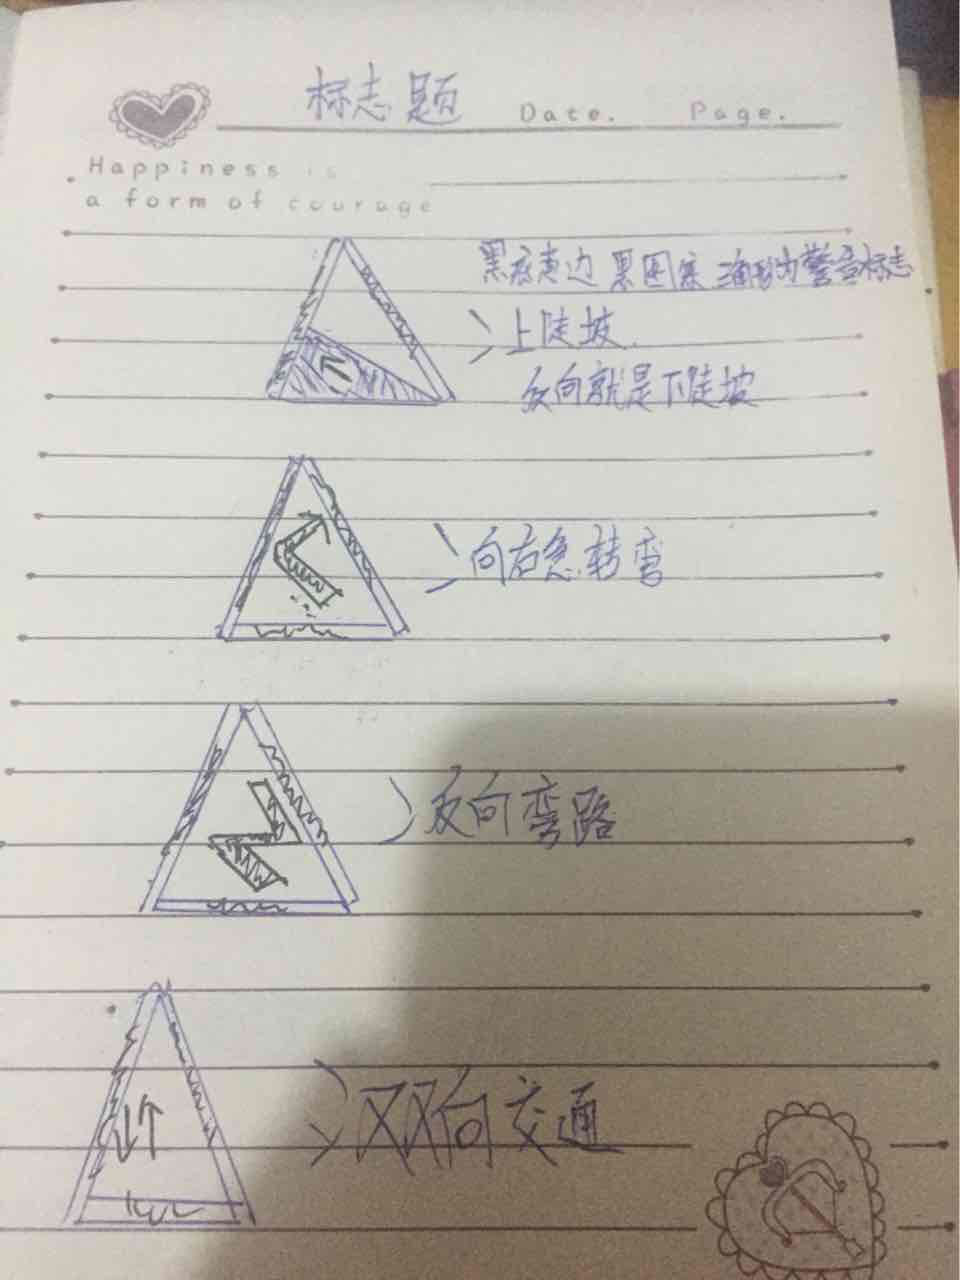 标志题 Date. Page.
Happiness is
a form of courage
黑底黄边 黑图案 三角形为警告标志
上陡坡
反向就是下陡坡
向右急转弯
反向弯路
双向交通